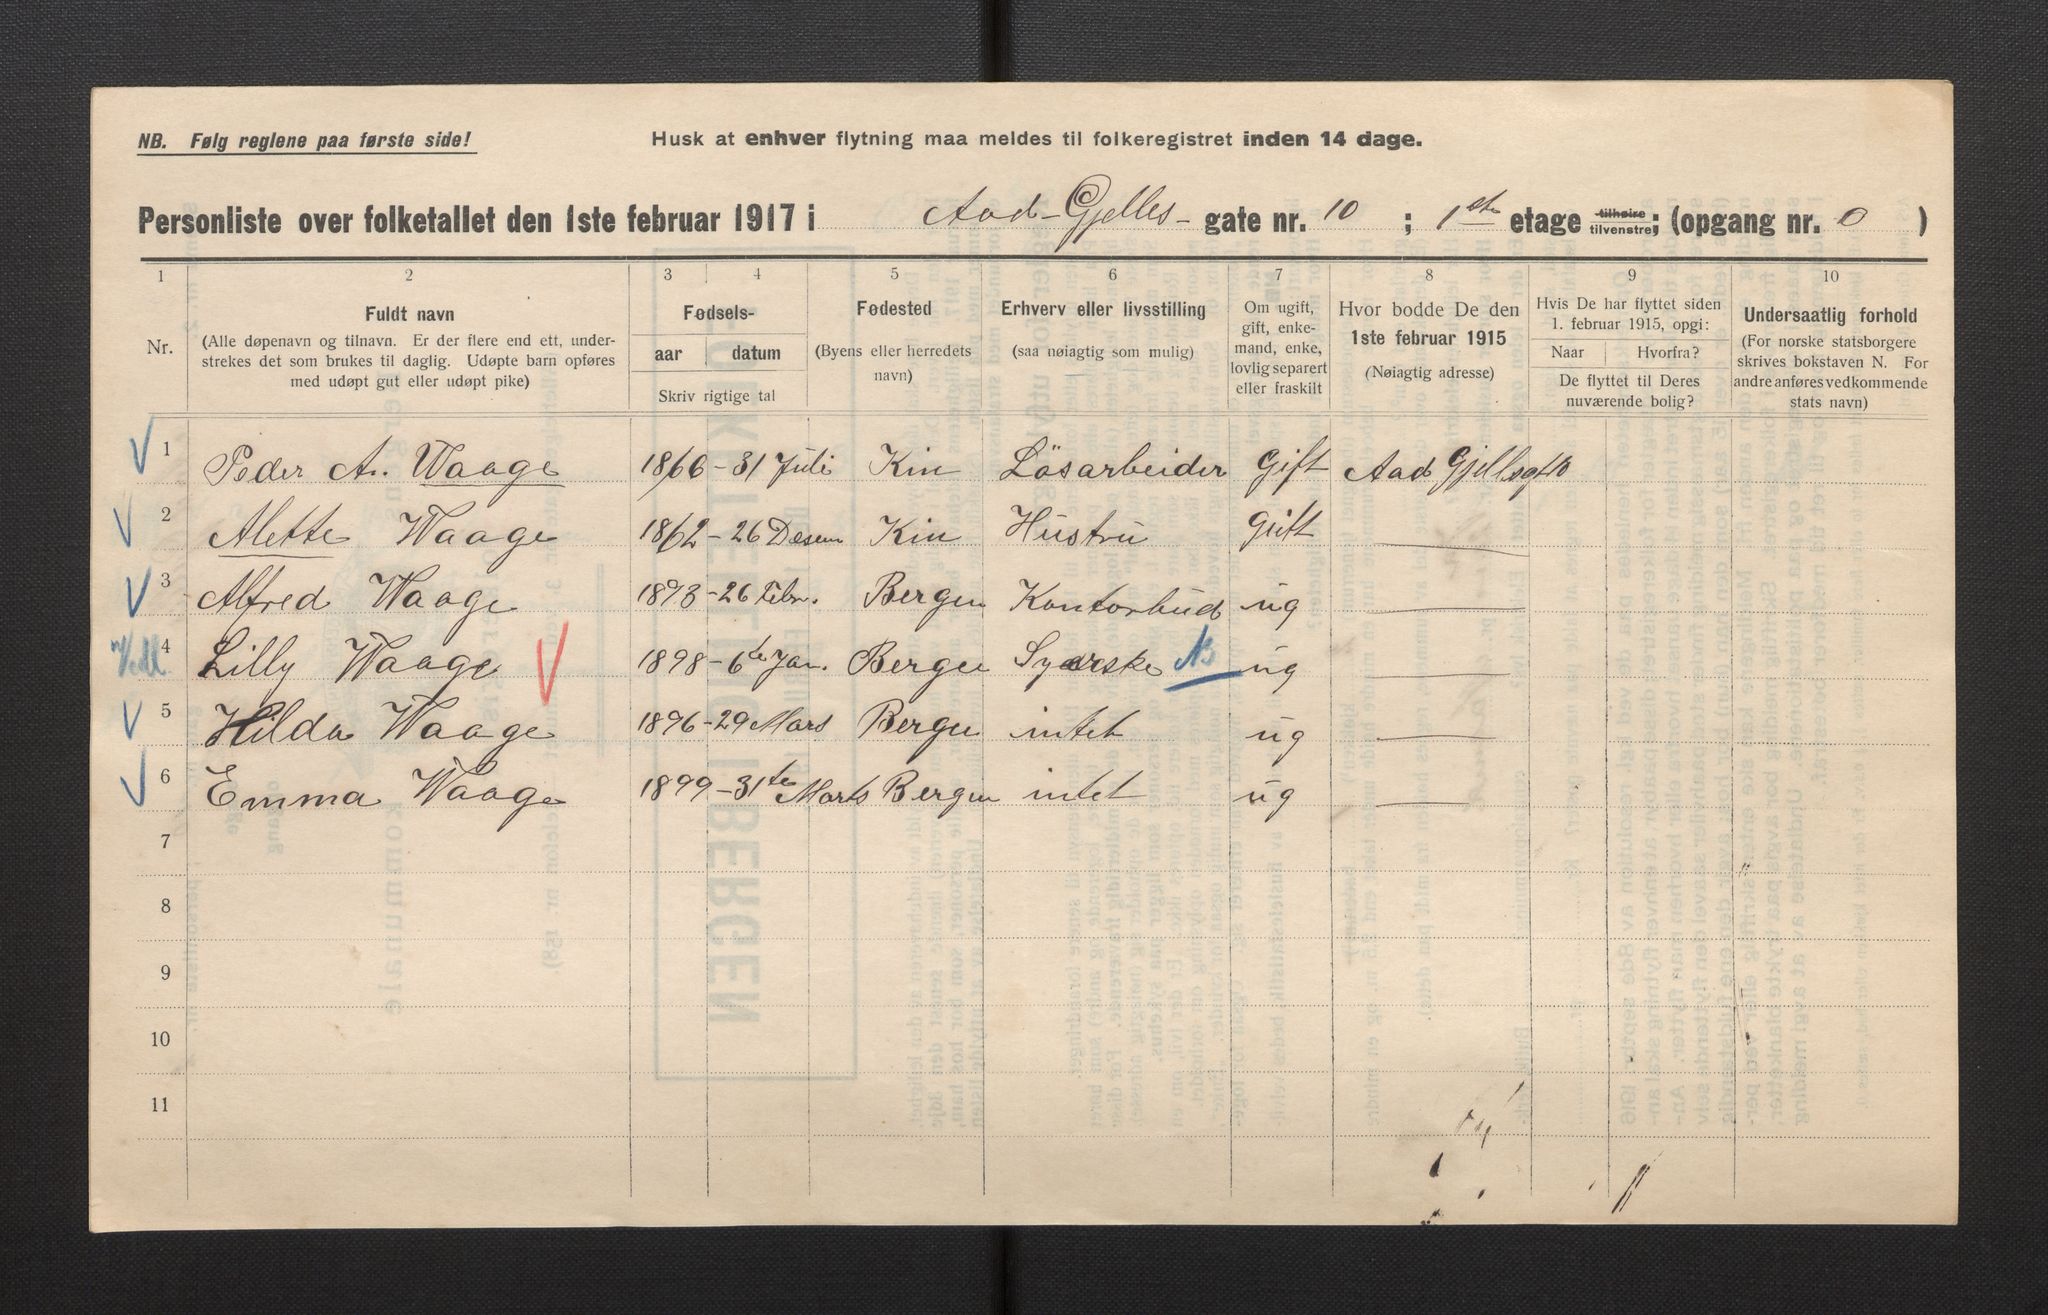 NB. Følg reglene paa første side! Husk at enhver flytning maa meldes til folkeregistret inden 14 dage.
Personliste over folketallet den 1ste februar 1917 i Aad-Gjelles- gate nr. 10 ; 1ste etage tilhøire tilvenstre; (opgang nr. 0 )
1 2 3 4 5 6 7 8 9 10
Nr.
Fuldt navn
(Alle døpenavn og tilnavn. Er der flere end ett, under-
strekes det som brukes til daglig. Udøpte barn opføres
med udøpt gut eller udøpt pike)
Fødsels-
aar datum
Skriv rigtige tal
Fødested
(Byens eller herredets
navn)
Erhverv eller livsstilling
(saa nøiagtig som mulig)
Om ugift,
gift, enke-
mand, enke,
lovlig separert
eller fraskilt
Hvor bodde De den
1ste februar 1915
(Nøiagtig adresse)
Hvis De har flyttet siden
1. februar 1915, opgi:
Naar Hvorfra?
De flyttet til Deres
nuværende bolig?
Undersaatlig forhold
(For norske statsborgere
skrives bokstaven N. For
andre anføres vedkommende
stats navn)
1 Peder A. Waage 1866 - 31 Juli Kin Lösarbeider Gift Aad Gjellsgt 10
2 Alette Waage 1862 - 26 Desem Kin Hustru Gift
3 Alfred Waage 1893 - 26 Febr. Bergen Kontorbud ug
4 Lilly Waage 1898 - 6te Jan. Bergen Syerske ug
5 Hilda Waage 1896 - 29 Mars Bergen intet ug
6 Emma Waage 1899 - 31te Marts Bergen intet ug
7
8
9
10
11